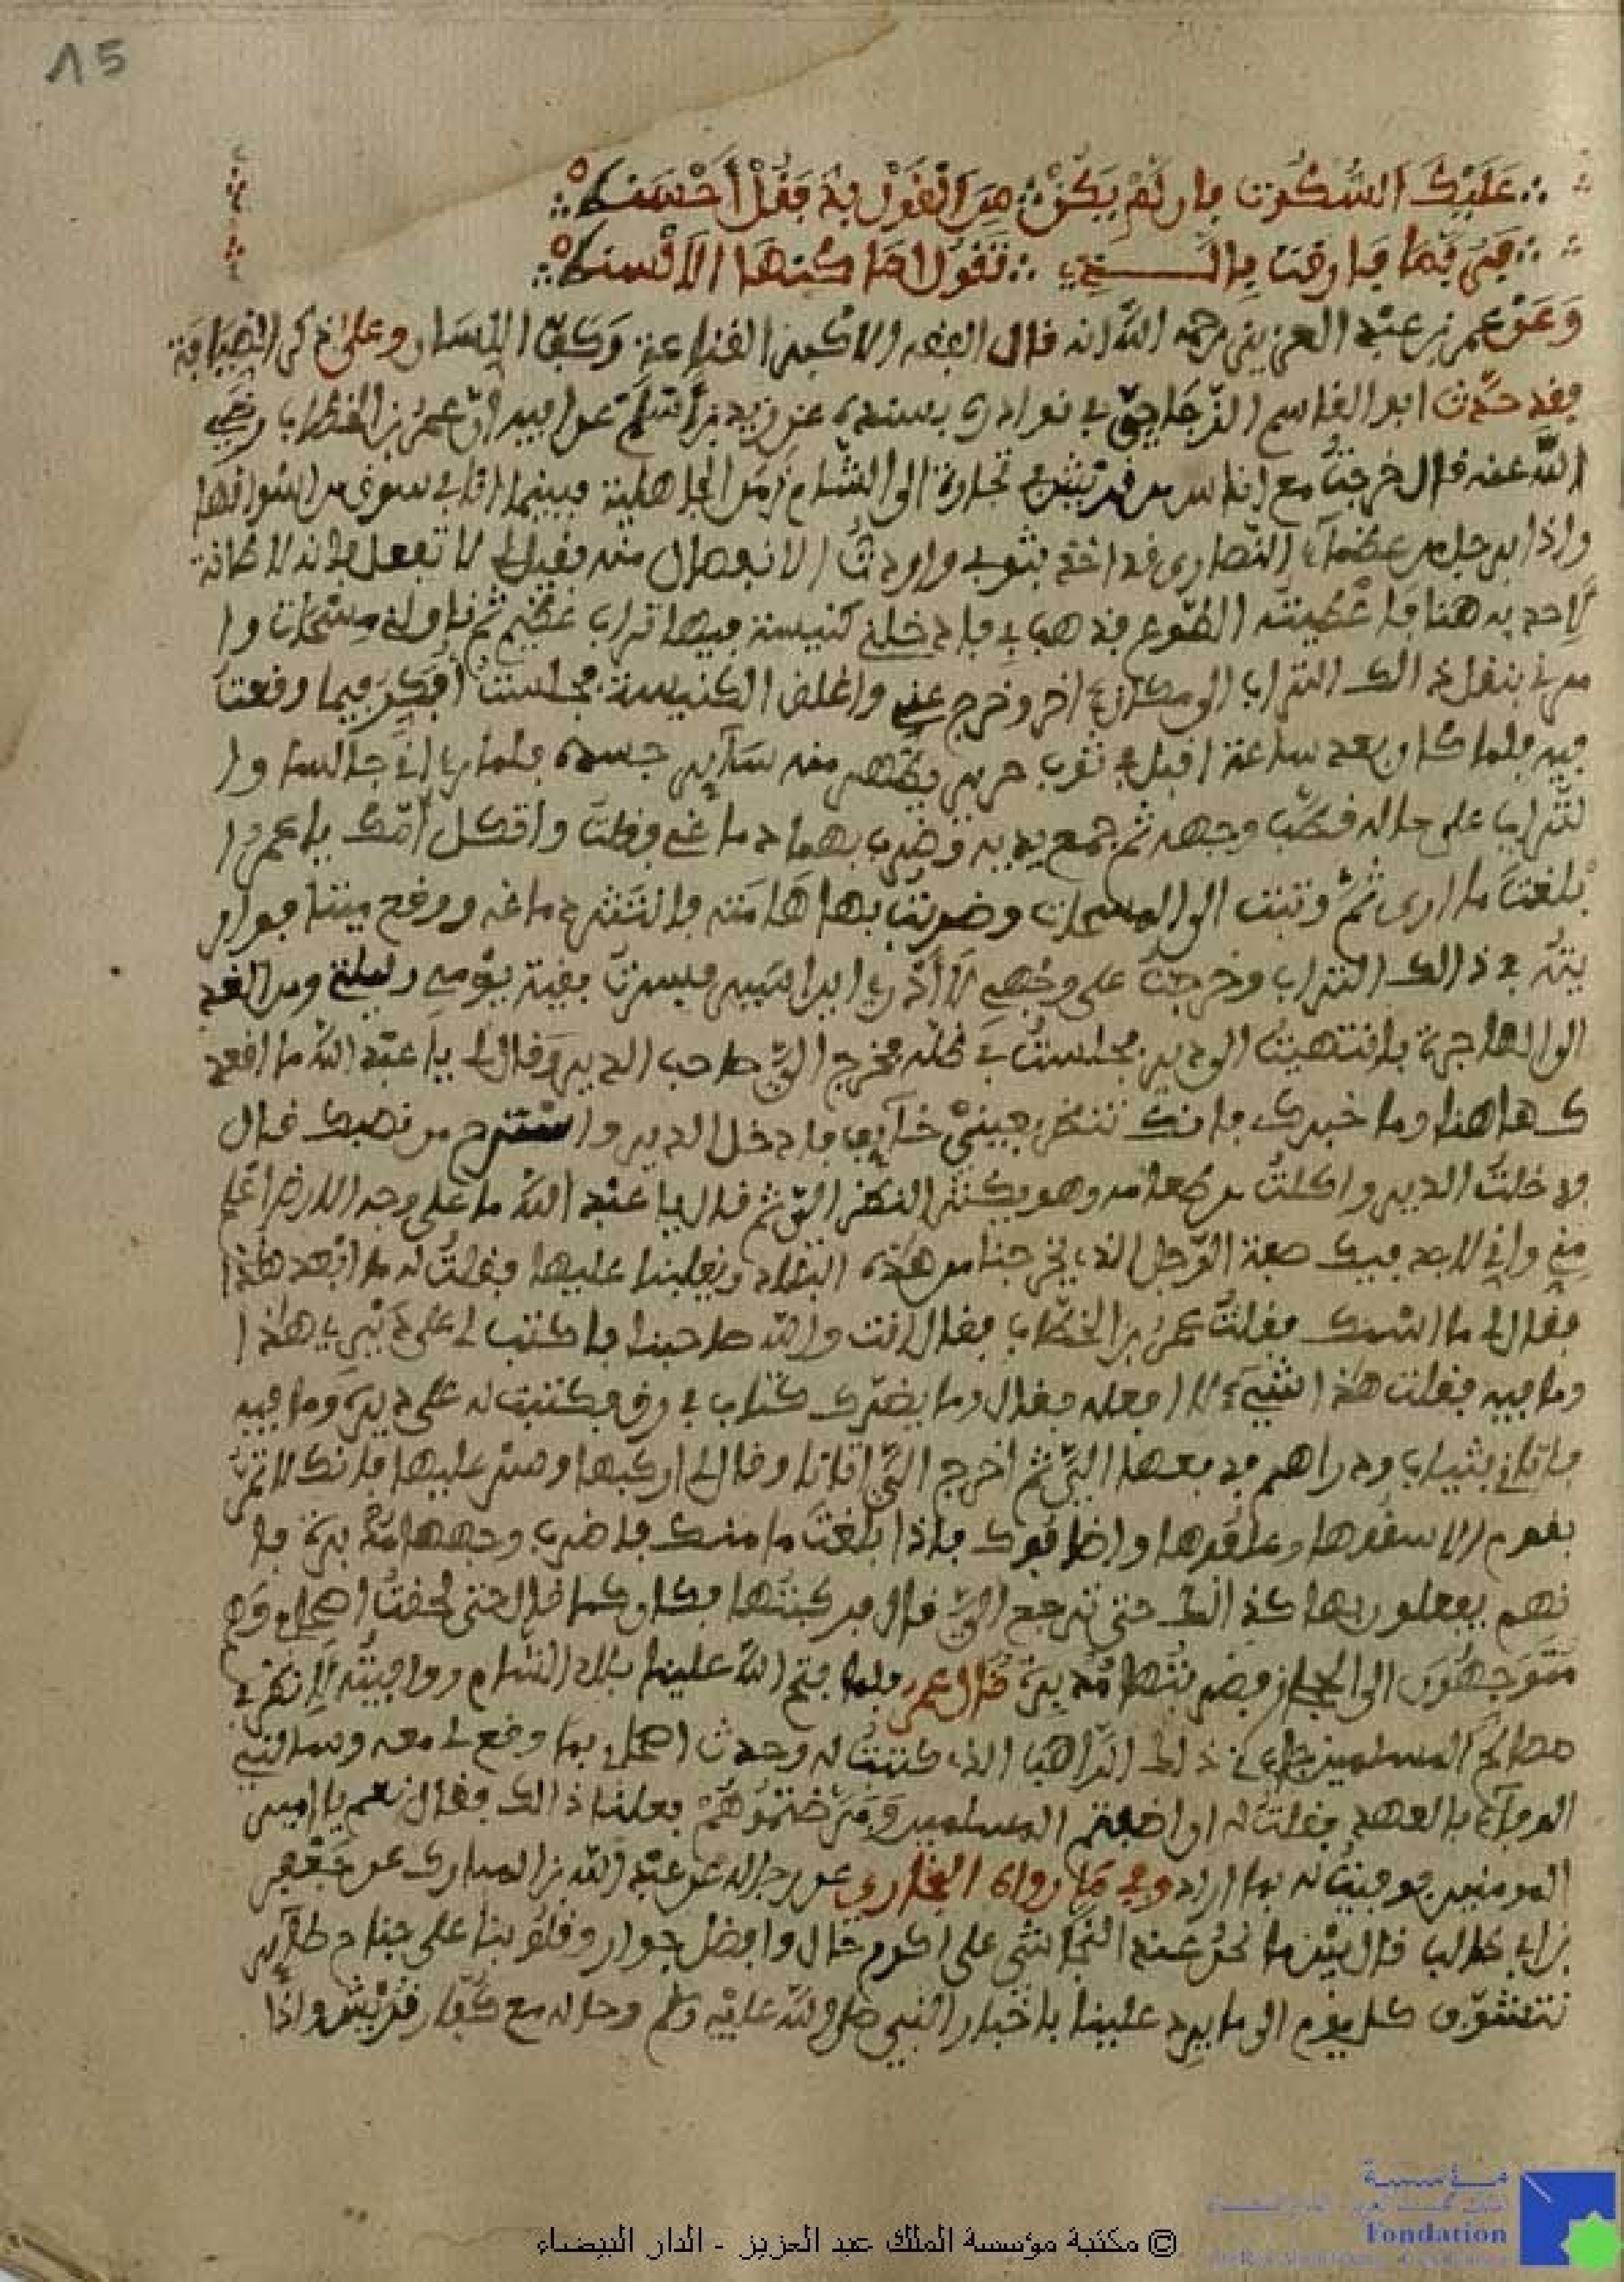 15
عَلَيْكَ السُّكُوتَ فإن لَمْ يَكُنْ ∴ مِنَ القَوْلِ بُدٌّ فَقُلْ أَحْسَنَه
فَرُبَّمَا فارقت بالـــــذي ∴ تَقُولُ أماكنها الألسنه
وَعَنْ عمر بن عبد العزيز رحمه الله انه قال الفقه الاكبر القناعة وَكَفُّ اللِّسَان وعلى ذكر الضيافة
فقد حدّث ابو القاسم الزّجَاجِيّ في نوادره بسنده عن زيد بن أسْلَمَ عن ابيه انّ عمرَ بن الخطاب رضي
الله عنه قال خرجتُ مع اناس من قريش في تجارة الى الشام زمَن الجاهلية فبينما انا في سوق من اسْواقها
واذا برجل من عظمآء النّصارى قد اخذ بثوبي واردتُ الانفصال منه فقيل لي لا تفعل فإنه لا طاقة
لأحد به هنا فأعْطيتُه الطّوع فذهب بي فادخلني كنيسة فيها تراب عظيم ثم ناولني مِسْحاة وا
مرني بنقل ذالك التراب الى مكان آخر وخرج عني واغلق الكنيسة فجلستُ أُفَكِّرُ فيما وقعتُ
فيه فلما كان بعد ساعة اقبل في ثوب حرير يظهر منه سآئر جسده فلما رءاني جالسا وا
لتّراب على حاله قطّب وجهه ثم جمع يديه وضرب بهما دماغي وقلت واثكل أمّك يا عمر ا
بْلغتَ ما ارى ثُمَّ وثبت الى المسحاة وضربت بها هَامَته فانْتَثر دماغه ووقع ميتا فوار
يتُه في ذالك التراب وخرجتُ على وجْهي لَا أدْري اين اسير فسِرتُ بقية يوْمي وليلتي ومن الغد
الى الهاجرة فانتهيتُ الى دير فجلستُ في ظله فخرج اليَّ صاحب الدير وقال لي يا عبْد الله ما اقعد
ك هاهنا وما خبرك فإنك تنظر بعيْنيْ خآئف فادخل الدير واسْترح من نصبك قال
فدخلتُ الدير واكلتُ من طعامه وهو يكثر النظر اليّ ثم قال يا عبْد الله ما على وجه الارض اعلم
مِني واني لاجد فيك صفة الرّجل الذي يخرجنا من هَذه البلاد ويغلبنا عليها فقلتُ له ما ابْعد هذا
فقال لي ما اسْمك فقلتُ عمرُ بن الخطّاب فقال انت والله صاحبنا فاكتب لي على دَيْري هاذا
وما فيه فقلت هذا شيْء لا افعله فقال وما يضرّك كتاب في رق فكتبت له على ديره وما فيه
فاتاني بثياب ودراهم فدفعها اليّ ثم اخرج اليَّ اتانا وقال لي اركبها وسِرْ عليها فإنك لا تمرّ
بقوم الا سقَوها وعلفُوها واضافوك فإذا بلغتَ مامنك فاضرب وجهها مُدْبرة فإ
نهم يفعلون بها كذالك حتى ترجع اليَّ قال فركبتُها فكان كما قال حتى لحقتُ اصحابي وَهم
مُتَوَجِّهُون الى الحجاز فضربتُها مُدبِرَة قال عمر فلما فتح الله علينا بلاد الشام ووافيتُه لانظر في
مصالح المسلمين جاءني ذالك الرّاهب الذي كتبتُ له وحدث اصحابي بما وقع لي معه وسالني
الوفآء بالعهد فقلتُ له ان اضفتم المسلمين وَمَرّضتمُوهمْ فعلنا ذالك فقال نعم يا امير
المومنين فوفيتُ له بما اراد وفي مَا رواه البخاري عن رجاله عن عبْد الله بن المبارك عن جَعْفر
بن ابي طالب قال بيْنما نحْن عند النّجاشي على اكرم حَال وافضل جوار وقلُوبنا على جناح طآئر
نتشوّف كل يوم الى ما يرد علينا باخبار النبي صلى الله عليْه وسلم وحاله مع كفّار قريْش واذا
© مكتبة مؤسسة الملك عبد العزيز - الدار البيضاء
مؤسسة
Fondation